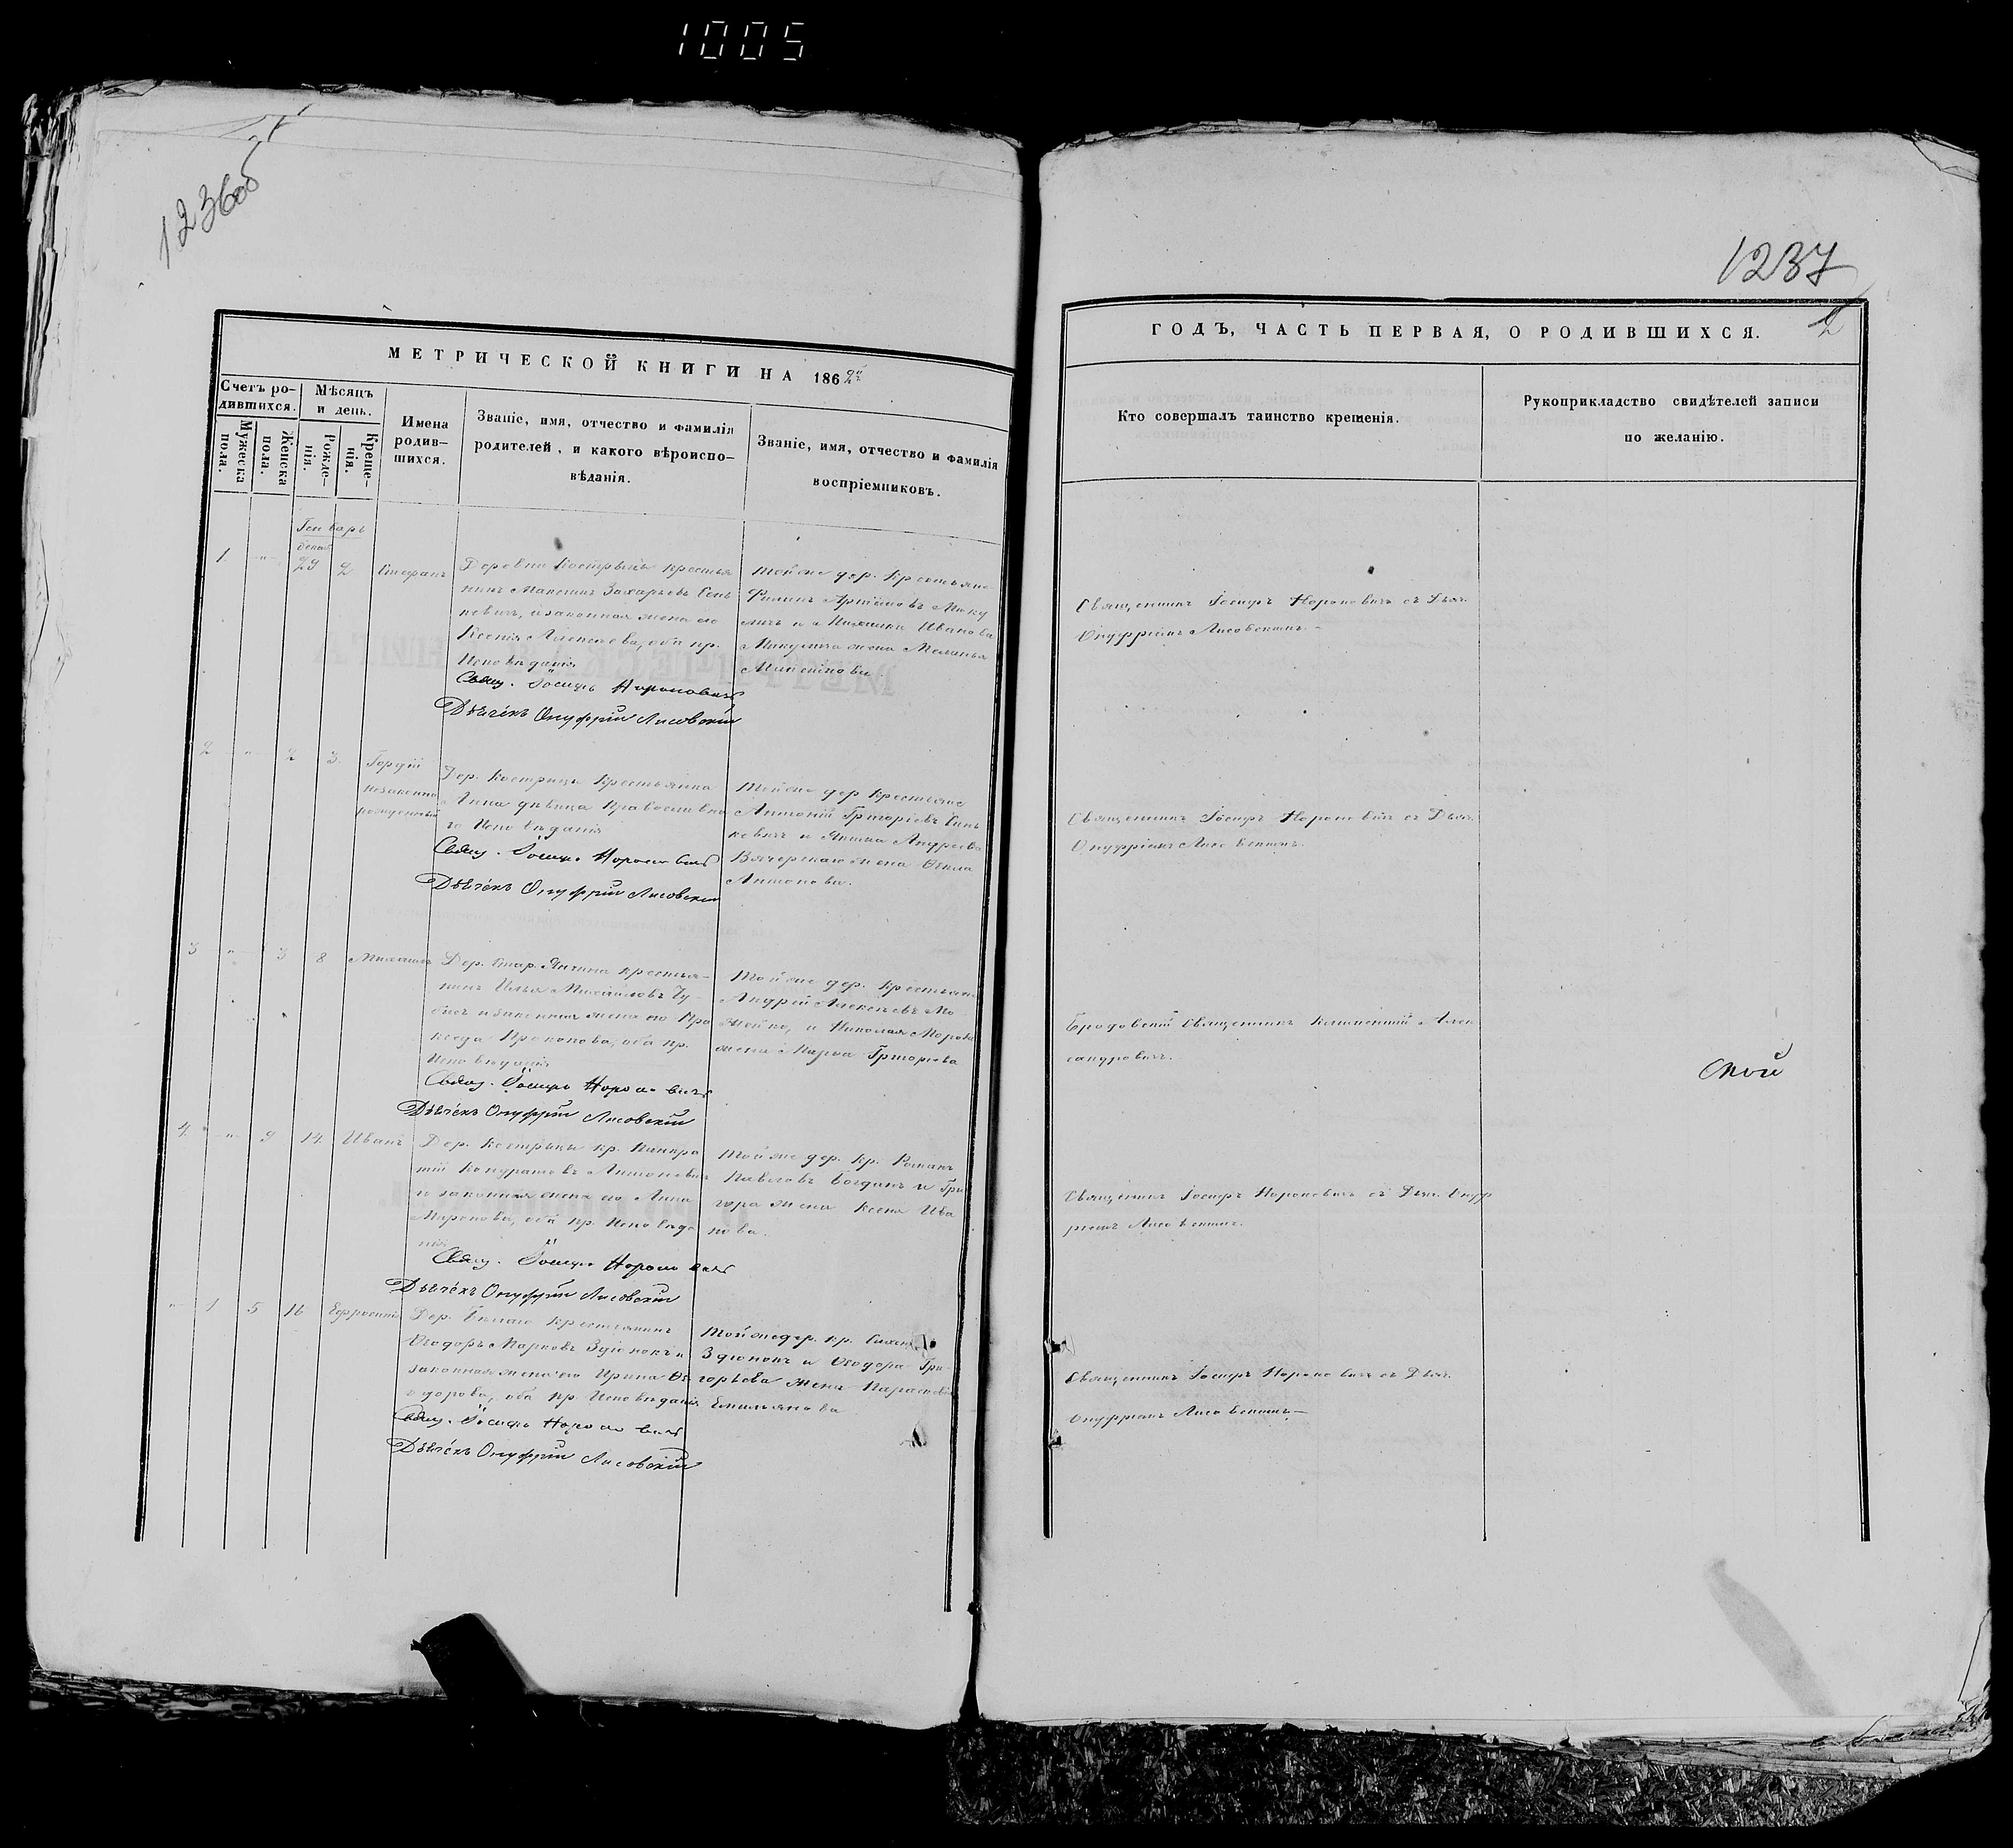 1005
1236об
1237
2
МЕТРИЧЕСКОЙ КНИГИ НА 1862й
Счетъ ро-
дившихся.
Мужеска
пола.
Женска
пола.
Мѣсяцъ
и день.
Рожде-
нія.
Креще-
нія.
Имена
родив-
шихся.
Званіе, имя, отчество и фамилія
родителей, и какого вѣроиспо-
вѣданія.
Званіе, имя, отчество и фамилія
воспріемниковъ.
ГОДЪ, ЧАСТЬ ПЕРВАЯ, О РОДИВШИХСЯ.
Кто совершалъ таинство крещенія.
Рукоприкладство свидѣтелей записи
по желанію.
Генварь
декаб
1. " 29 2 Стефанъ
Деревни Кострицы крестья
нинъ Максимъ Захарьевъ Сень
кевичъ, и законная жена его
Ксенія Алексѣева, оба пр.
Исповѣданія
Свящ. Іосифъ Нороновичъ
Дьячекъ Онуфрій Лисовскій
Той же дер. Крестьяне
Филипъ Артемовъ Мику
личъ и Иванова
Микулича жена Меланья
Максимова.
Священникъ Іосифъ Нороновичъ съ Дьяч.
Онуфріемъ Лисовскимъ.-
2 " 2 3. Гордій
незаконно
рожденный
Дер. Кострицы Крестьянка
Анна дѣвица Православна
го Исповѣданія
Свящ. Іосифъ Нороновичъ
Дьячекъ Онуфрій Лисовскій
Той же дер Крестьяне
Антоній Григорьевъ Сень
кевичъ и Якима Андреева
жена
Антонова.
Священникъ Іосифъ Нороновичъ съ Дьяч.
Онуфріемъ Лисовскимъ.
3 " 3 8 Михаилъ
Дер. Стар. Янчина крестья-
нинъ Илья Михайловъ Чу-
и законная жена его Пра
кседа Прокопова, оба пр.
Исповѣданія
Свящ. Іосифъ Нороновичъ
Дьячекъ Онуфрій Лисовскій
Той же дер. крестьяне
Андрей Алексѣевъ Мо
жейко, и Николая Мороза
жена Марья Григорьева
Бродовскій Священникъ Алек
сандровичъ.
4. " 9 14. Иванъ
Дер. Кострицы кр. Панкра
тій Кондратовъ Антоновичъ
и законная жена его Анна
Миронова, оба пр. Исповѣда
нія
Свящ. Іосифъ Нороновичъ
Дьячекъ Онуфрій Лисовскій
Той же дер. Кр. Романъ
Павловъ Богданъ и Гри
гора жена Ксенія Ива
нова.
Священникъ Іосифъ Нороновичъ съ Дьяч. Онуф
ріемъ Лисовскимъ.
" 1 5 16 Ефросинія
Дер. Крестьянинъ
Ѳеодоръ Марковъ Здюнокъ и
законная жена его Ирина Ѳе
одорова, оба пр. Исповѣданія
Свящ. Іосифъ Нороновичъ
Дьячекъ Онуфрій Лисовскій
Той же дер. кр.
Здюнокъ и Ѳеодора Гри-
горьева жена Параскевія
Емильянова
Священникъ Іосифъ Нороновичъ съ Дьяч.
Онуфріемъ Лисовскимъ.-